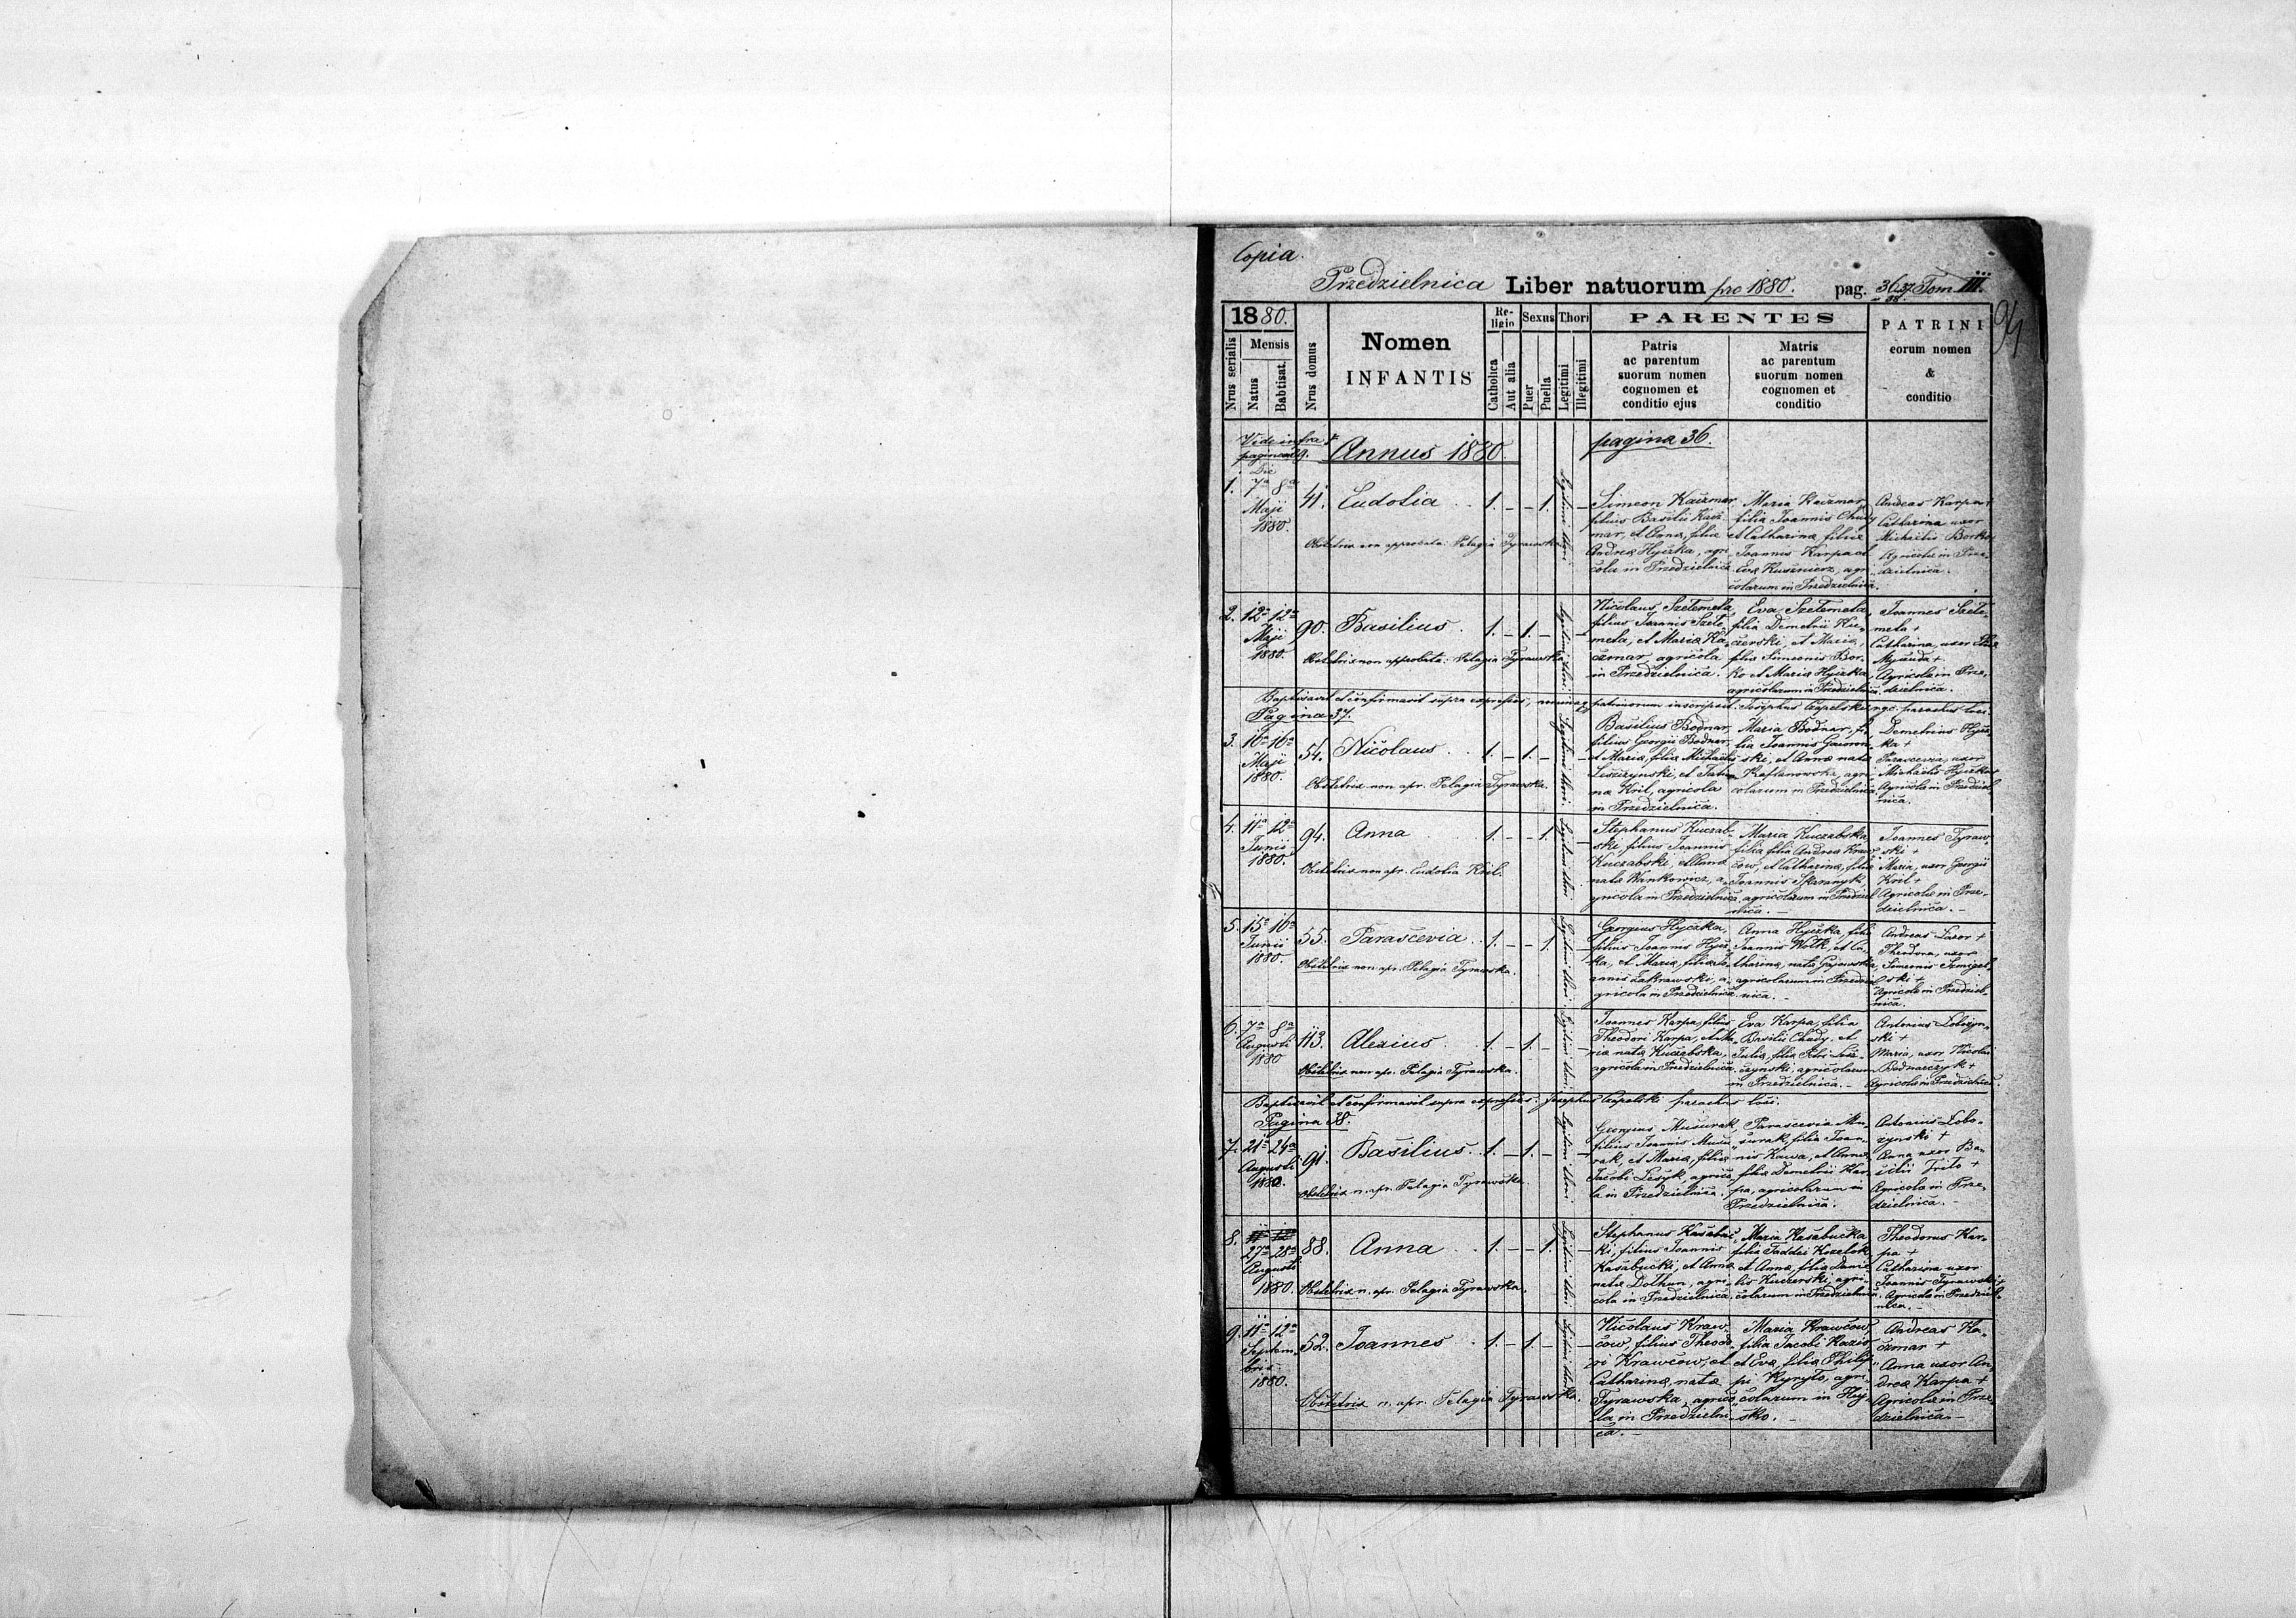 Copia.
Przedzielnica Liber natuorum pro 1880. pag. 36. 37. 38. Tom III.
94
1880.
Nrus serialis
Mensis
Natus
Babtisat.
Nrus domus
Nomen
INFANTIS
Religio
Catholica
Aut alia
Sexus
Puer
Puella
Thori
Legitimi
Illegitimi
PARENTES
Patris
ac parentum
suorum nomen
cognomen et
conditio ejus
Matris
ac parentum
suorum nomen
cognomen et
conditio
PATRINI
eorum nomen
&
conditio
Vide infra
Annus 1880
pagina 36.
Die
1. 7a 8a
Maji
1880.
41. Eudokia 1. – – 1. –
Legitimi thori
Obstetrix non approbata: Pelagia Tyrawska
Simeon Kaczmar
filius Basilii Kacz-
mar, et Anna, filia
Andreæ Hyczka, agri-
cola in Przedzielnica
Maria Kaczmar
filia Joannis Chudy
et Catharinæ, filiæ
Joannis Karpa et
Eva Kusznierz, agri-
colarum in Przedzielnica.
Andreas Karpa +
Catharina uxor
Michaëlis Borko
Agricolæ in Prze-
dzielnica.
2. 12a 12a
Maji
1880.
90. Basilius. 1. – 1. – –
Legitimi thori
Obstetrix non approbata: Pelagia Tyrawska
Nicolaus Szetemeta,
filius Joannis Szete-
meta, et Mariæ Ka-
czmar, agricola
in Przedzielnica.
Eva Szetemeta,
filia Demetrii Ku-
czerski, et Maria,
filia Simeonis Bor-
ko et Maria Hyczka,
agricolarum in Przedzielnica.
Joannes Szete-
meta +
Catharina, uxor
Agricolæ in Prze-
dzielnica.
Baptisavit et confirmavit supra expressos, nomina patrinorum inscripsit: Josephus Czapelski parochus loci.
Pagina 37.
3. 16a 16a
Maji
1880.
54. Nicolaus. 1. – 1. – –
Legitimi thori
Obstetrix non apr. Pelagia Tyrawska.
Basilius Bodnar,
filius Georgii Bodnar
et Maria, filia Michaëlis
Leszczynski, et Tatia-
na Kril, agricola
in Przedzielnica.
Maria Bodnar, fi-
lia Joannis Gawron-
ski, et Anna nata
Kaftanowska, agri-
colarum in Przedzielnica
Demetrius Hycz-
ka +
Parascevia, uxor
Michaëlis Hyczka +
Agricola in Przedziel-
nica.
4. 11a 12a
Junii
1880.
94. Anna 1. – – 1. –
Legitimi thori
Obstetrix non apr. Eudokia Kril.
Stephanus Kuczab-
ski, filius Joannis
Kuczabski et Anna
nata Wankowicz, a-
gricola in Przedzielnica
Maria Kuczabska,
filia, filia Andreæ Kraw-
cow, et Catharina, filia
Joannis Skaranyk,
agricolarum in Przedziel-
nica. –
Joannes Tyraw-
ski +
Maria, uxor Georgii
Kril +
Agricolæ in Prze-
dzielnica. –
5. 15a 16a
Junii
1880.
55. Parascevia. 1. – – 1. –
Legitimi thori
Obstetrix non apr. Pelagia Tyrawska.
Georgius Hyczka,
filius Joannis Hycz-
ka, et Maria, filia Jo-
annis Zakrawski, a-
gricola in Przedzielnica
Anna Hyczka, filia
Joannis Wolk, et Ca-
tharina, nata Gajewska,
agricolarum in Przedziel-
nica. –
Andreas Lazor +
Theodora, uxor
Simeonis Szmigel-
ski +
Agricola in Przedziel-
nica.
6. 7a 8a
Augusti
1880
113. Alexius. 1. – 1. – –
Legitimi thori
Obstetrix non apr. Pelagia Tyrawska.
Joannes Karpa, filius
Theodori Karpa, et Ma-
ria nata Kuczabska,
agricola in Przedzielnica
Eva Karpa, filia
Basilii Chudy, et
Julia, filia Lesz-
czynski, agricolarum
in Przedzielnica. –
Antonius Lobozyn-
ski +
Maria, uxor Nicolai
Bodnarczyk +
Agricola in Przedzielnica.
Baptisavit et confirmavit supra expressos: Josephus Czapelski parochus loci.
Pagina 38.
7. 21a 24a
Augusti
1880.
91. Basilius. 1. – 1. – –
Legitimi thori
Obstetrix n. apr. Pelagia Tyrawska
Georgius Musurak,
filius Joannis Musu-
rak, et Maria, filia
Jacobi Lesyk, agrico-
la in Przedzielnica.
Parascevia Mu-
surak, filia Joan-
nis Kawa, et Anna,
filia Demetrii Kar-
pa, agricolarum in
Przedzielnica.
Antonius Lobo-
zynski +
Anna uxor Ba-
silii Frito +
Agricola in Prze-
dzielnica. –
8. 27a 28a
Augusti
1880.
88. Anna 1. – – 1. –
Legitimi thori
Obstetrix n. apr. Pelagia Tyrawska.
Stephanus Kasabuc-
ki, filius Joannis
Kasabucki, et Anna
nata Dothun, agri-
cola in Przedzielnica
Maria Kasabucka
filia Faddei Kozelok
et Anna, filia Danie-
lis Kuczerski, agri-
colarum in Przedzielnica.
Theodorus Kar-
pa +
Catharina uxor
Joannis Tyrawski +
Agricola in Przedziel-
nica. –
9. 11a 12a
Septem-
bris
1880.
52. Joannes 1. – 1. – –
Legitimi thori
Obstetrix n. apr. Pelagia Tyrawska.
Nicolaus Kraw-
cow, filius Theodo-
ri Krawcow, et
Catharina, nata
Tyrawska, agrico-
la in Przedzielni-
ca. –
Maria Krawcow,
filia Jacobi Hazis
et Eva, filia Philip-
pi Kynyto, agri-
colarum in Huj-
sko. –
Andreas Ka-
czmar +
Anna uxor An-
dreæ Karpa +
Agricolæ in Prze-
dzielnica. –